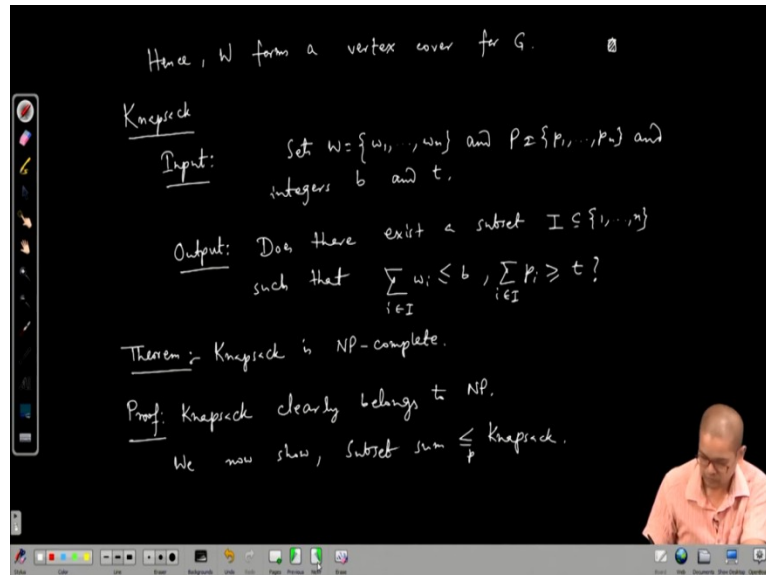 Hence, W forms a vertex cover for G.
Knapsack
Input: Sets W = {w₁, ..., wₙ} and P = {p₁, ..., pₙ} and
integers b and t.
Output: Does there exist a subset I ⊆ {1, ..., n}
such that ∑_{i∈I} wᵢ ≤ b, ∑_{i∈I} pᵢ ≥ t?
Theorem: Knapsack is NP-complete.
Proof: Knapsack clearly belongs to NP.
We now show, Subset sum ≤ₚ Knapsack.